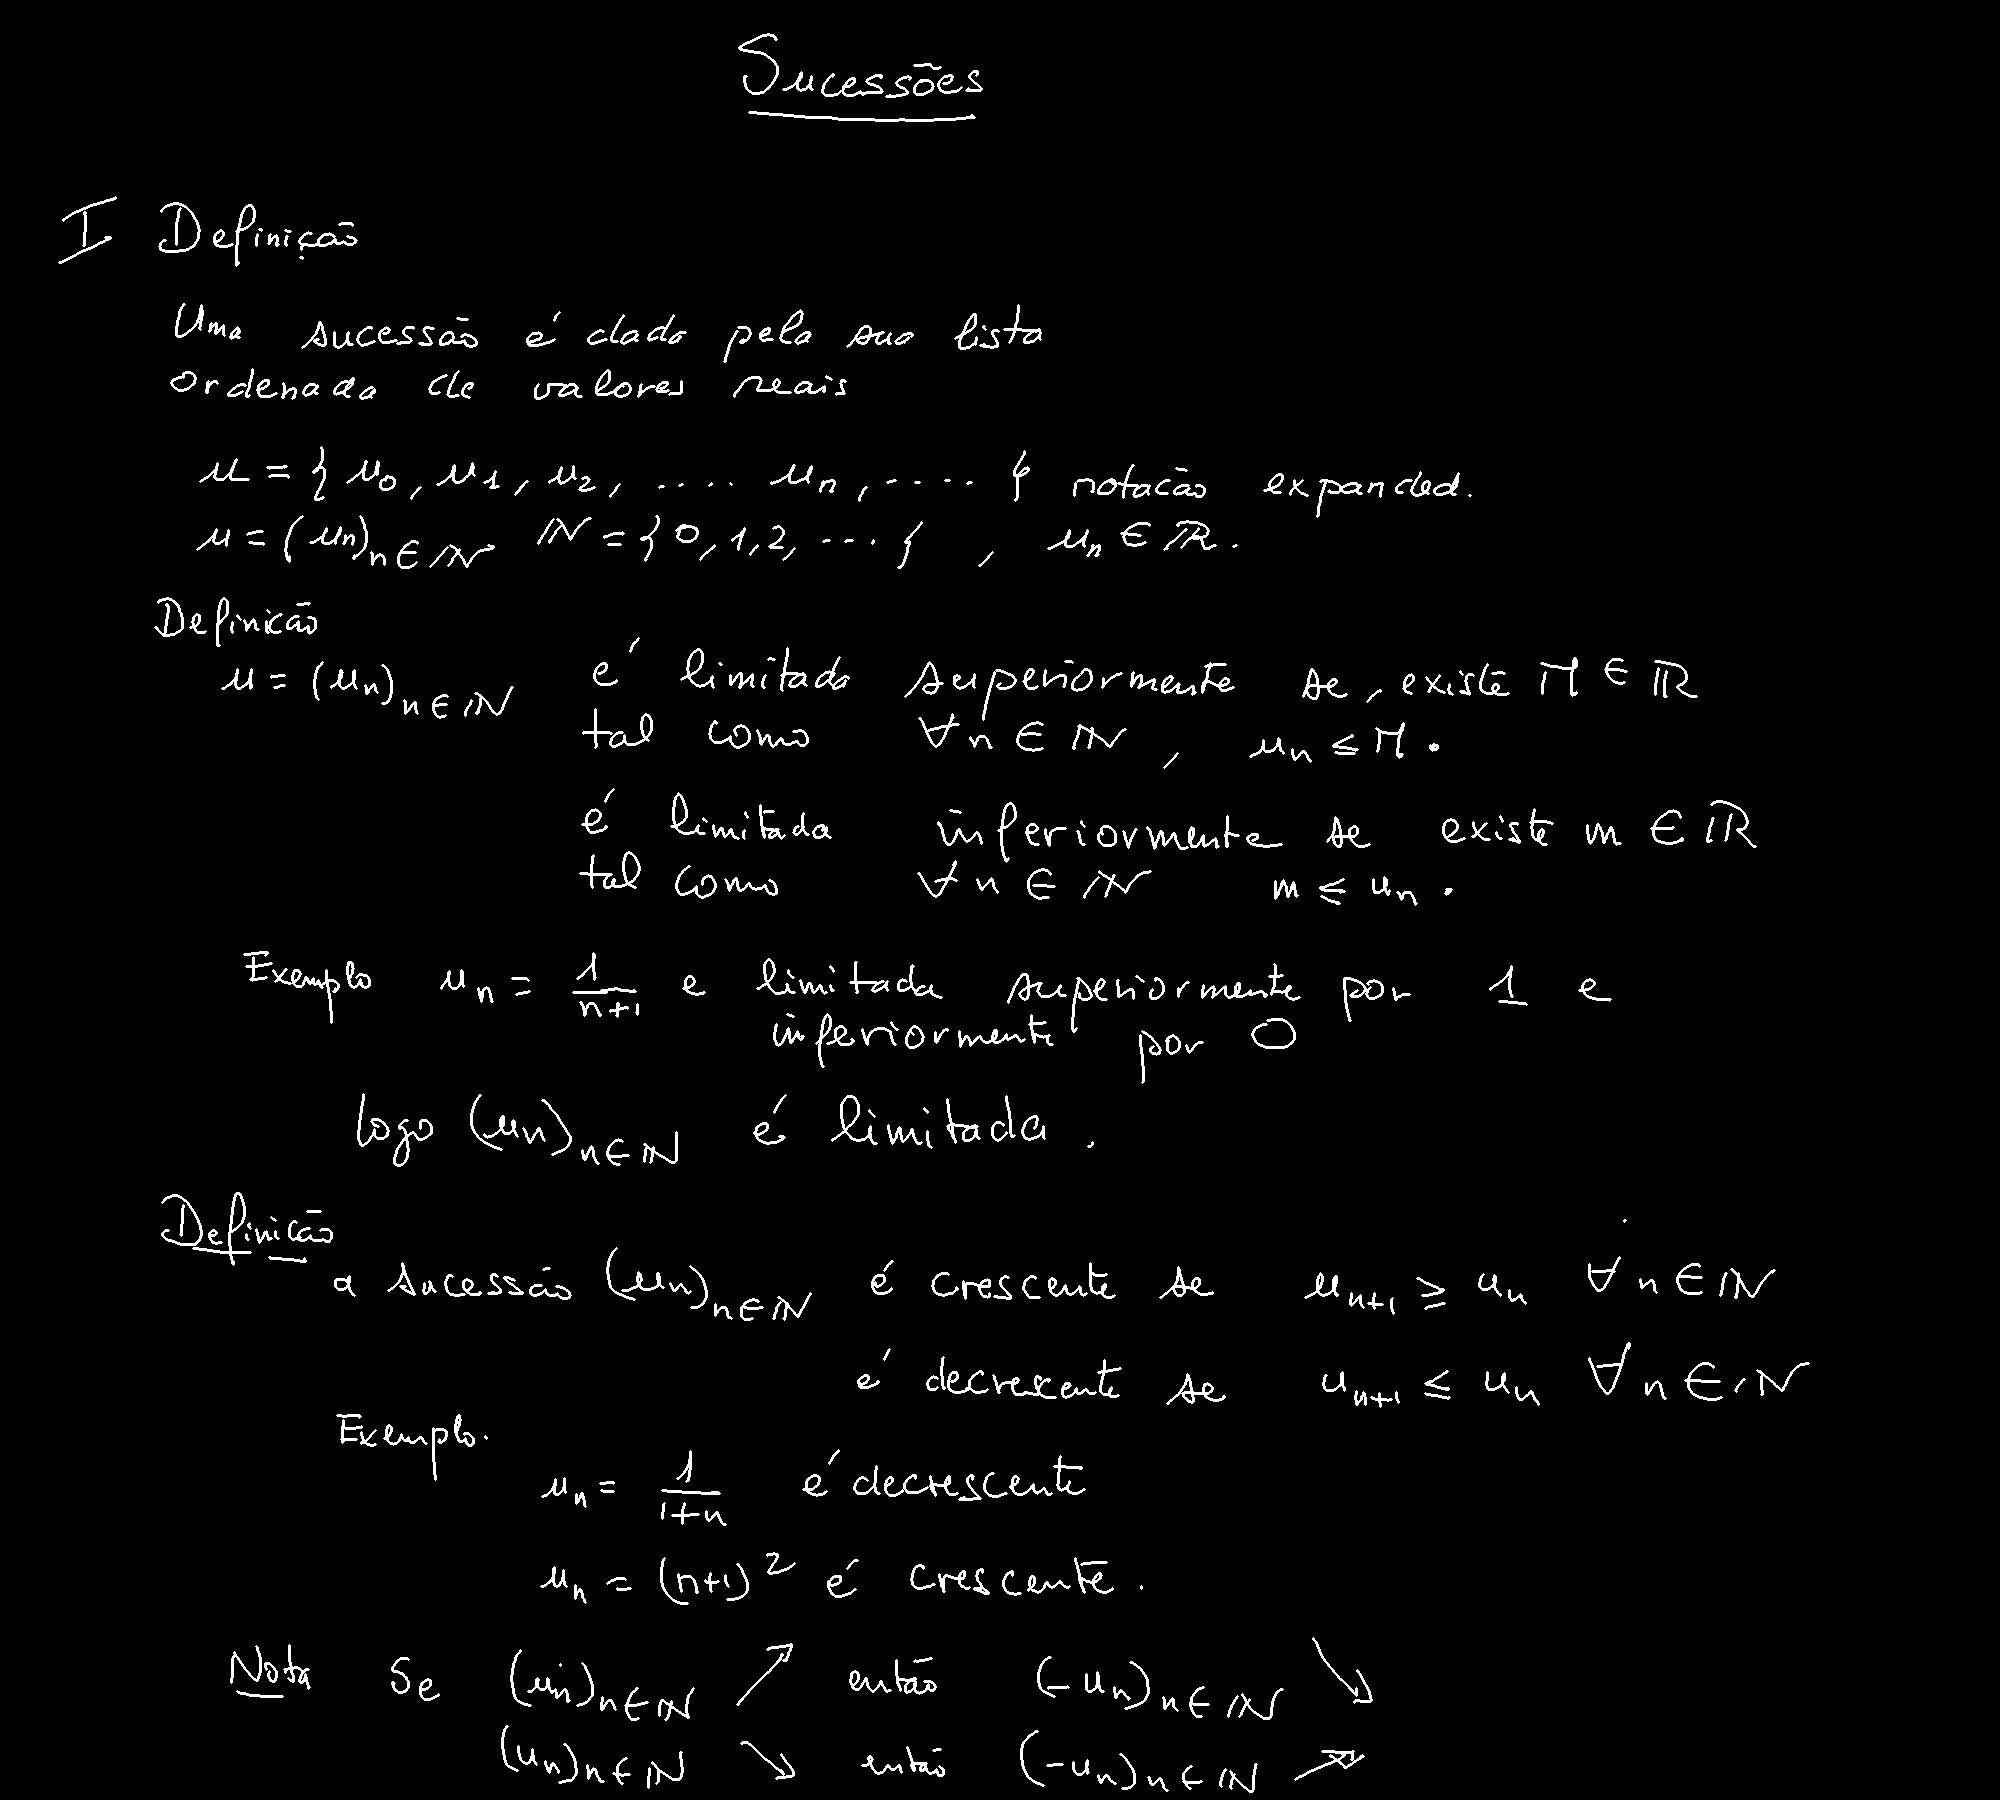 Sucessões
I Definição
Uma sucessão é dada pela sua lista
ordenada de valores reais
u = { u₀, u₁, u₂, .... uₙ, .... } notacão expanded.
u = (uₙ)ₙ∈ℕ ℕ = {0, 1, 2, ... } , uₙ ∈ ℝ.
Definicão
u = (uₙ)ₙ∈ℕ é limitada superiormente se, existe M ∈ ℝ
tal como ∀n ∈ ℕ, uₙ ≤ M.
é limitada inferiormente se existe m ∈ ℝ
tal como ∀n ∈ ℕ m ≤ uₙ.
Exemplo uₙ = 1/(n+1) e limitada superiormente por 1 e
inferiormente por 0
logo (uₙ)ₙ∈ℕ é limitada.
Definicão
a sucessão (uₙ)ₙ∈ℕ é crescente se uₙ₊₁ ≥ uₙ ∀n ∈ ℕ
é decrescente se uₙ₊₁ ≤ uₙ ∀n ∈ ℕ
Exemplo.
uₙ = 1/(1+n) é decrescente
uₙ = (n+1)² é crescente.
Nota Se (uₙ)ₙ∈ℕ ↗ então (-uₙ)ₙ∈ℕ ↘
(uₙ)ₙ∈ℕ ↘ então (-uₙ)ₙ∈ℕ ↗